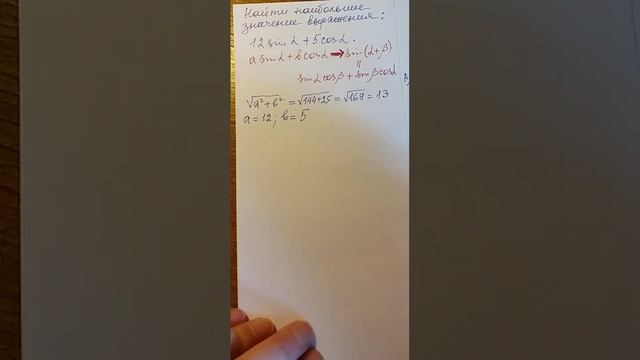 Найти наибольшее
значение выражения:
12 sin α + 5 cos α.
a sin α + b cos α → sin (α + β)
=
sin α cos β + sin β cos α
√a² + b² = √144 + 25 = √169 = 13
a = 12; b = 5